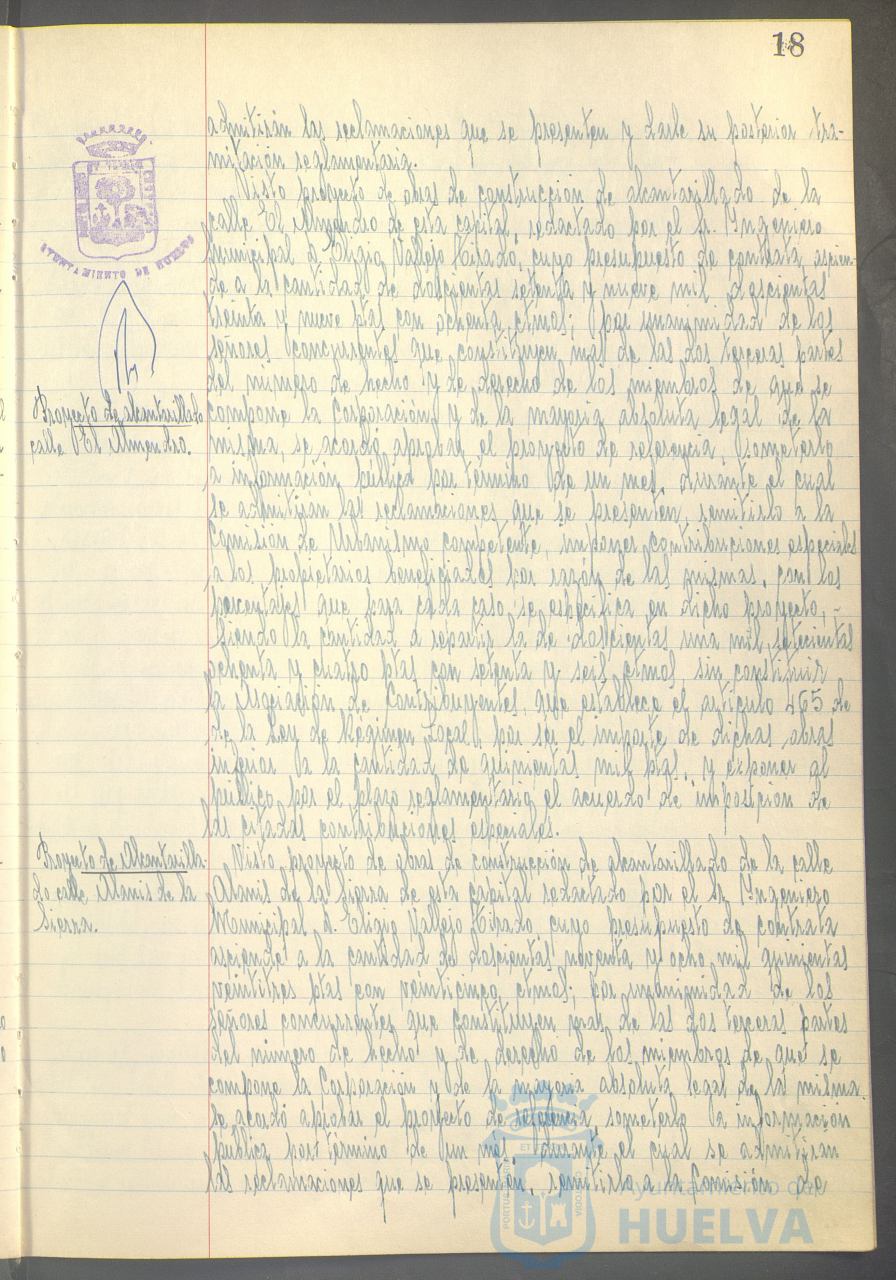 18
admitirán las reclamaciones que se presenten y darle su posterior tra-
mitación reglamentaria.
Visto proyecto de obras de construcción de alcantarillado de la
calle El Almendro de esta capital, redactado por el Sr. Ingeniero
Municipal D. Eligio Vallejo Tirado, cuyo presupuesto de contrata ascien-
de a la cantidad de doscientas setenta y nueve mil doscientas
treinta y nueve ptas con ochenta ctmos; por unanimidad de los
señores concurrentes que constituyen mas de las dos terceras partes
del número de hecho y de derecho de los miembros de que se
compone la Corporación y de la mayoria absoluta legal de la
misma, se acordó aprobar el proyecto de referencia, someterlo
a información pública por término de un mes, durante el cual
se admitirán las reclamaciones que se presenten, remitirlo a la
Comisión de Urbanismo competente, imponer contribuciones especiales
a los propietarios beneficiados por razón de las mismas, con los
porcentajes que para cada caso se especifica en dicho proyecto,
siendo la cantidad a repartir la de doscientas una mil setecientas
ochenta y cuatro ptas con setenta y seis ctmos, sin constituir
la Asociación de Contribuyentes, que establece el artículo 465 de
de la Ley de Régimen Local, por ser el importe de dichas obras
inferior a la cantidad de quinientas mil ptas, y exponer al
público por el plazo reglamentario el acuerdo de imposición de
las citadas contribuciones especiales.
Visto proyecto de obras de construcción de alcantarillado de la calle
Alanis de la Sierra de esta capital redactado por el Sr. Ingeniero
Municipal D. Eligio Vallejo Tirado, cuyo presupuesto de contrata
asciende a la cantidad de doscientas noventa y ocho mil quinientas
veintitres ptas con veinticinco ctmos; por unanimidad de los
señores concurrentes que constituyen mas de las dos terceras partes
del número de hecho y de derecho de los miembros de que se
compone la Corporación y de la mayoria absoluta legal de la misma
se acordó aprobar el proyecto de referencia someterlo a información
pública por término de un mes, durante el cual se admitiran
las reclamaciones que se presenten, remitirlo a la Comisión de
AYUNTAMIENTO DE HUELVA
Proyecto de alcantarillado
calle El Almendro.
Proyecto de Alcantarilla-
do calle Alanis de la
Sierra.
Ayuntamiento de
HUELVA